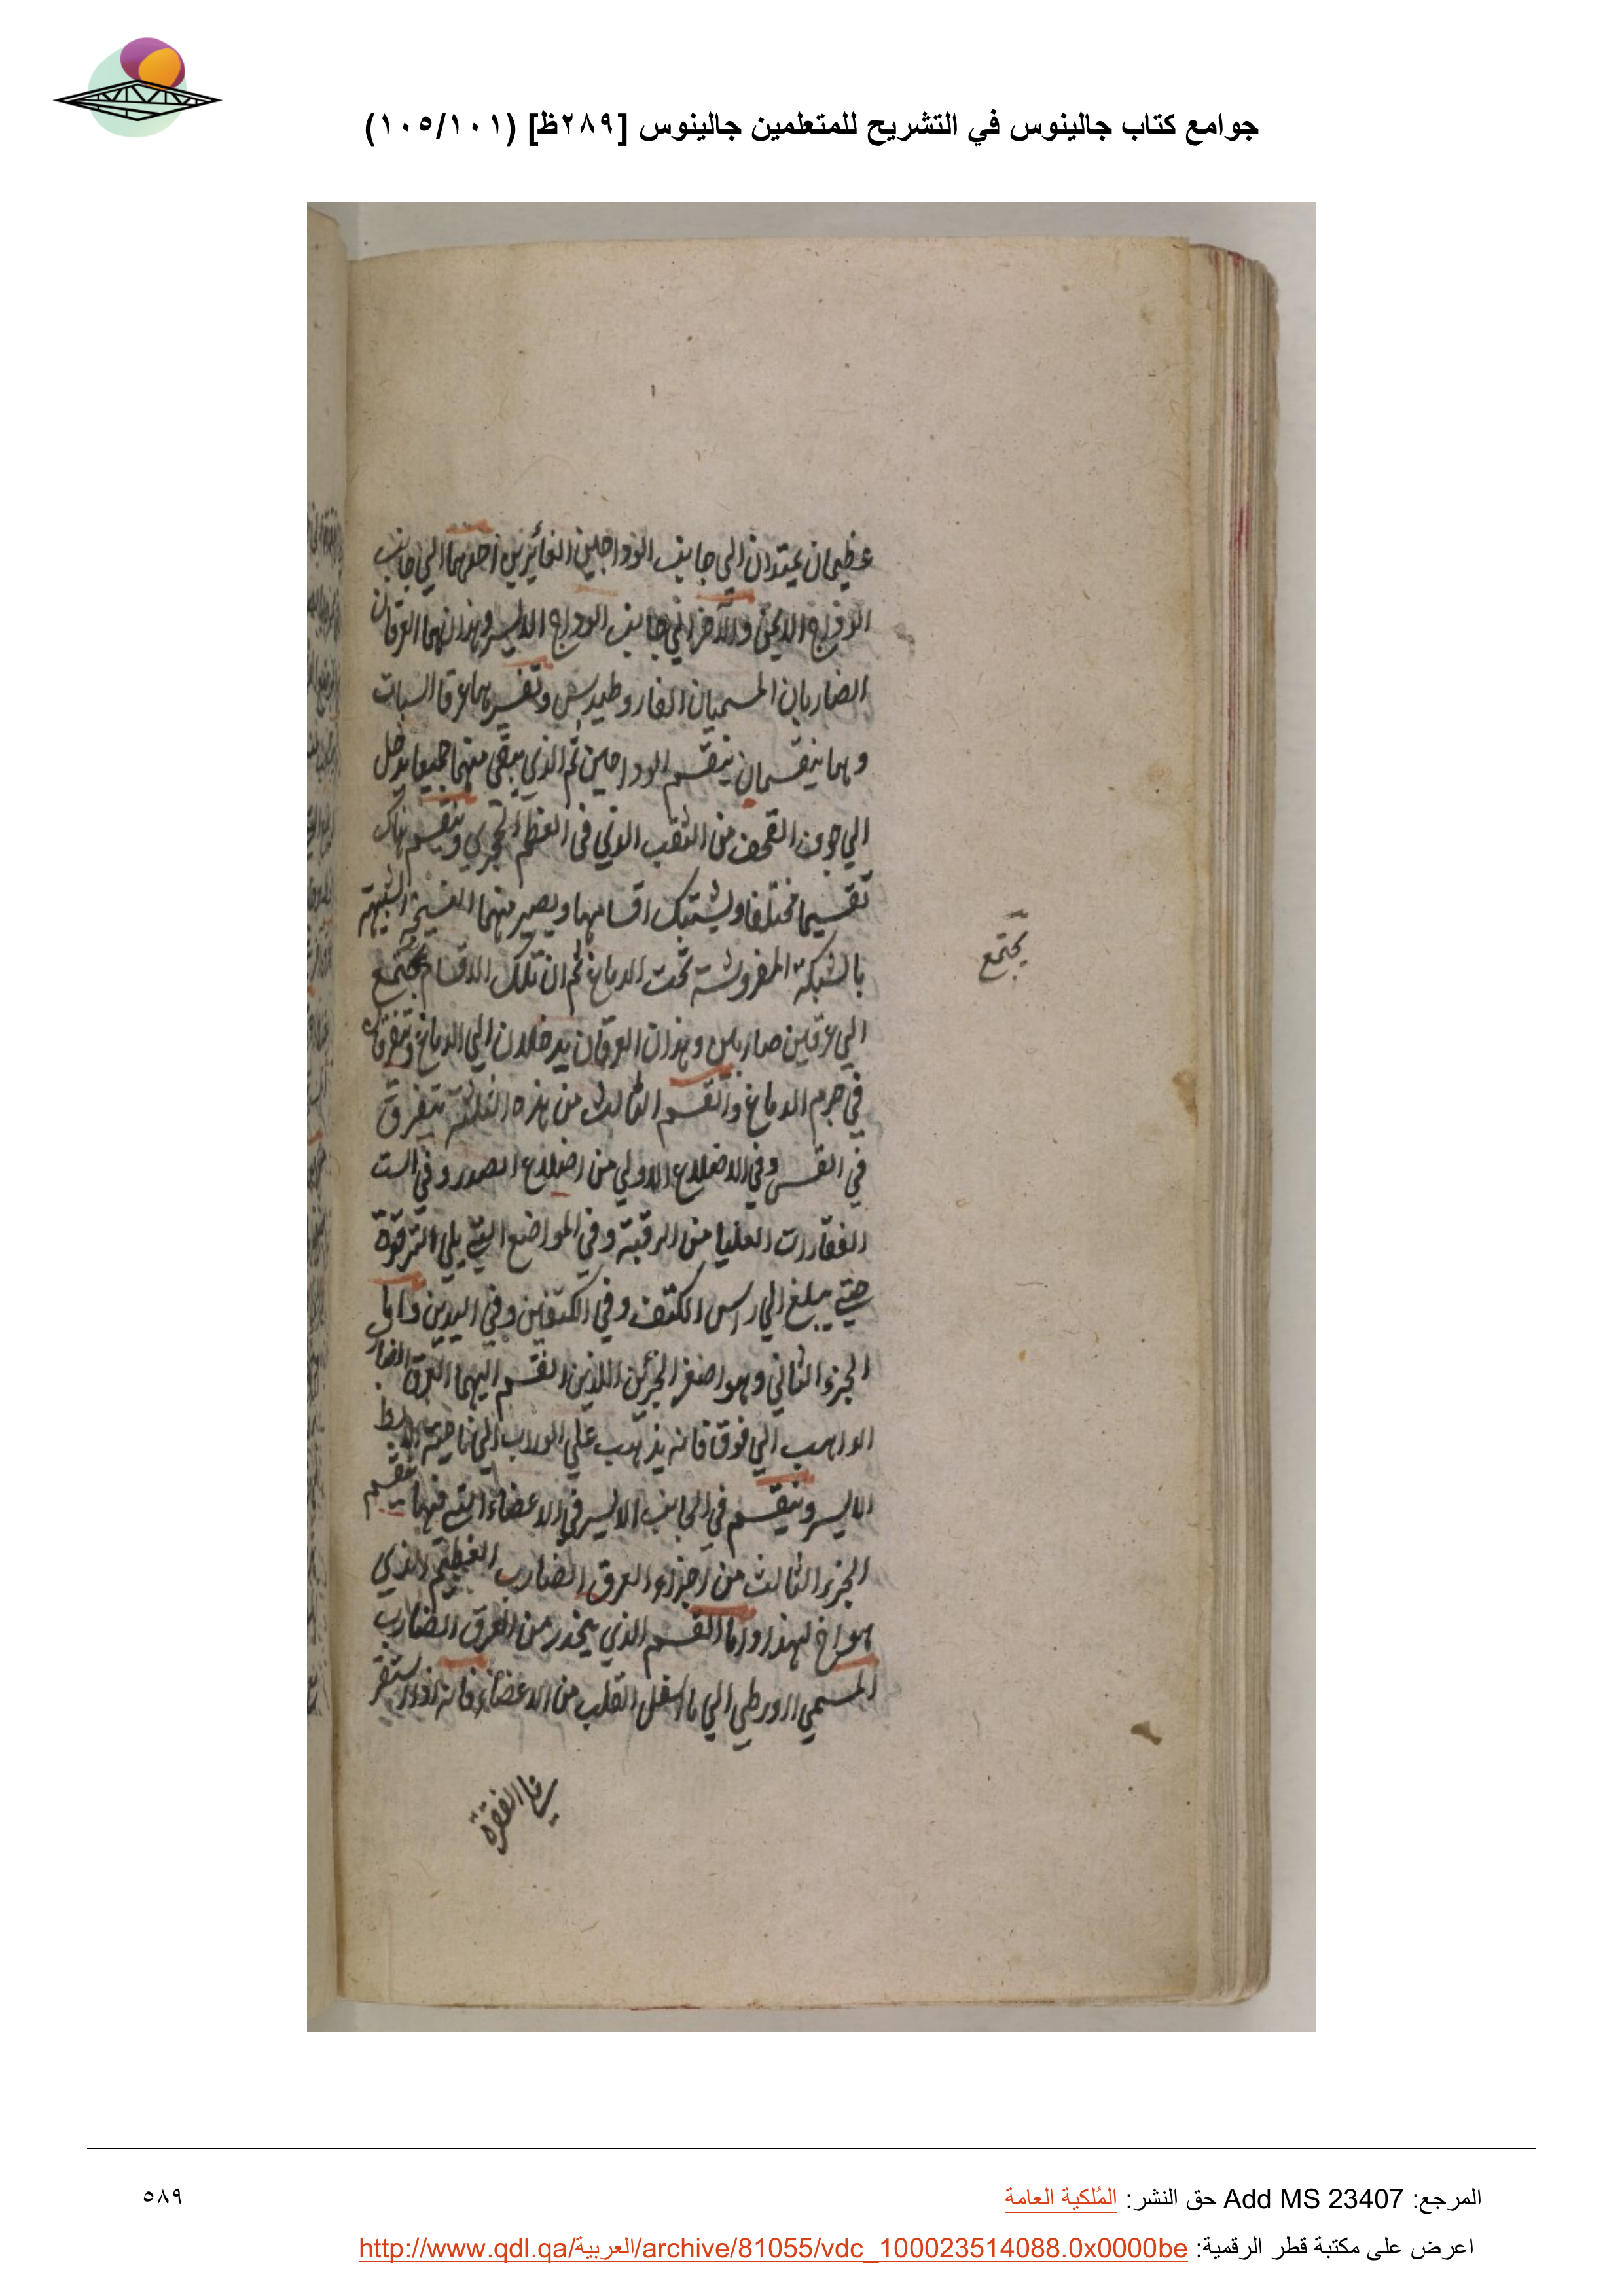 جوامع كتاب جالينوس في التشريح للمتعلمين جالينوس [٢٨٩ظ] (١٠٥/١٠١)
عظيمان يمتدان الي جانب الوداجين الغائرين احدهما الي جانب
الوداج الايمن والآخر الي جانب الوداج الايسر وهذان هما العرقان
الضاربان المسميان الفاروطيدس وتفسيرهما عرقا السبات
وهما ينقسمان ينقسم الوداجين ثم الذي يبقى منهما جميعا يدخل
الي جوف القحف من الثقب الذي في العظم الحجري وينقسم هناك
تقسيما مختلفا ويشتبك اقسامهما ويصير منهما النسيجة الشبيهة
بالشبكة المفروشة تحت الدماغ ثم ان تلك الاقسام تجتمع
يجتمع
الي عرقين ضاربين وهذان العرقان يدخلان الي الدماغ ويتفرقان
في جرم الدماغ والقسم الثالث من هذه الثلثة يتفرق
في القس وفي الاضلاع الاولي من اضلاع الصدر وفي الست
الفقارات العليا من الرقبة وفي المواضع التي يلي الترقوة
حتي يبلغ الي راس الكتف وفي الكتفين وفي اليدين واما
الجزء الثاني وهو اصغر الجزئين اللذين انقسم اليهما العرق الضار
الذاهب الي فوق فانه يذهب علي الوراب الي ناحية الابط
الايسر وينقسم في الجانب الايسر في الاعضاء التي فيها ينقسم
الجزء الثالث من اجزاء العرق الضارب العظيم الذي
هو اخ لهذا واما القسم الذي ينحدر من العرق الضارب
المسمي اورطي الي ما اسفل القلب من الاعضاء فانه اولا يستقر
علي الفقرة
المرجع: Add MS 23407 حق النشر: المُلكية العامة
٥٨٩
اعرض على مكتبة قطر الرقمية: http://www.qdl.qa/العربية/archive/81055/vdc_100023514088.0x0000be